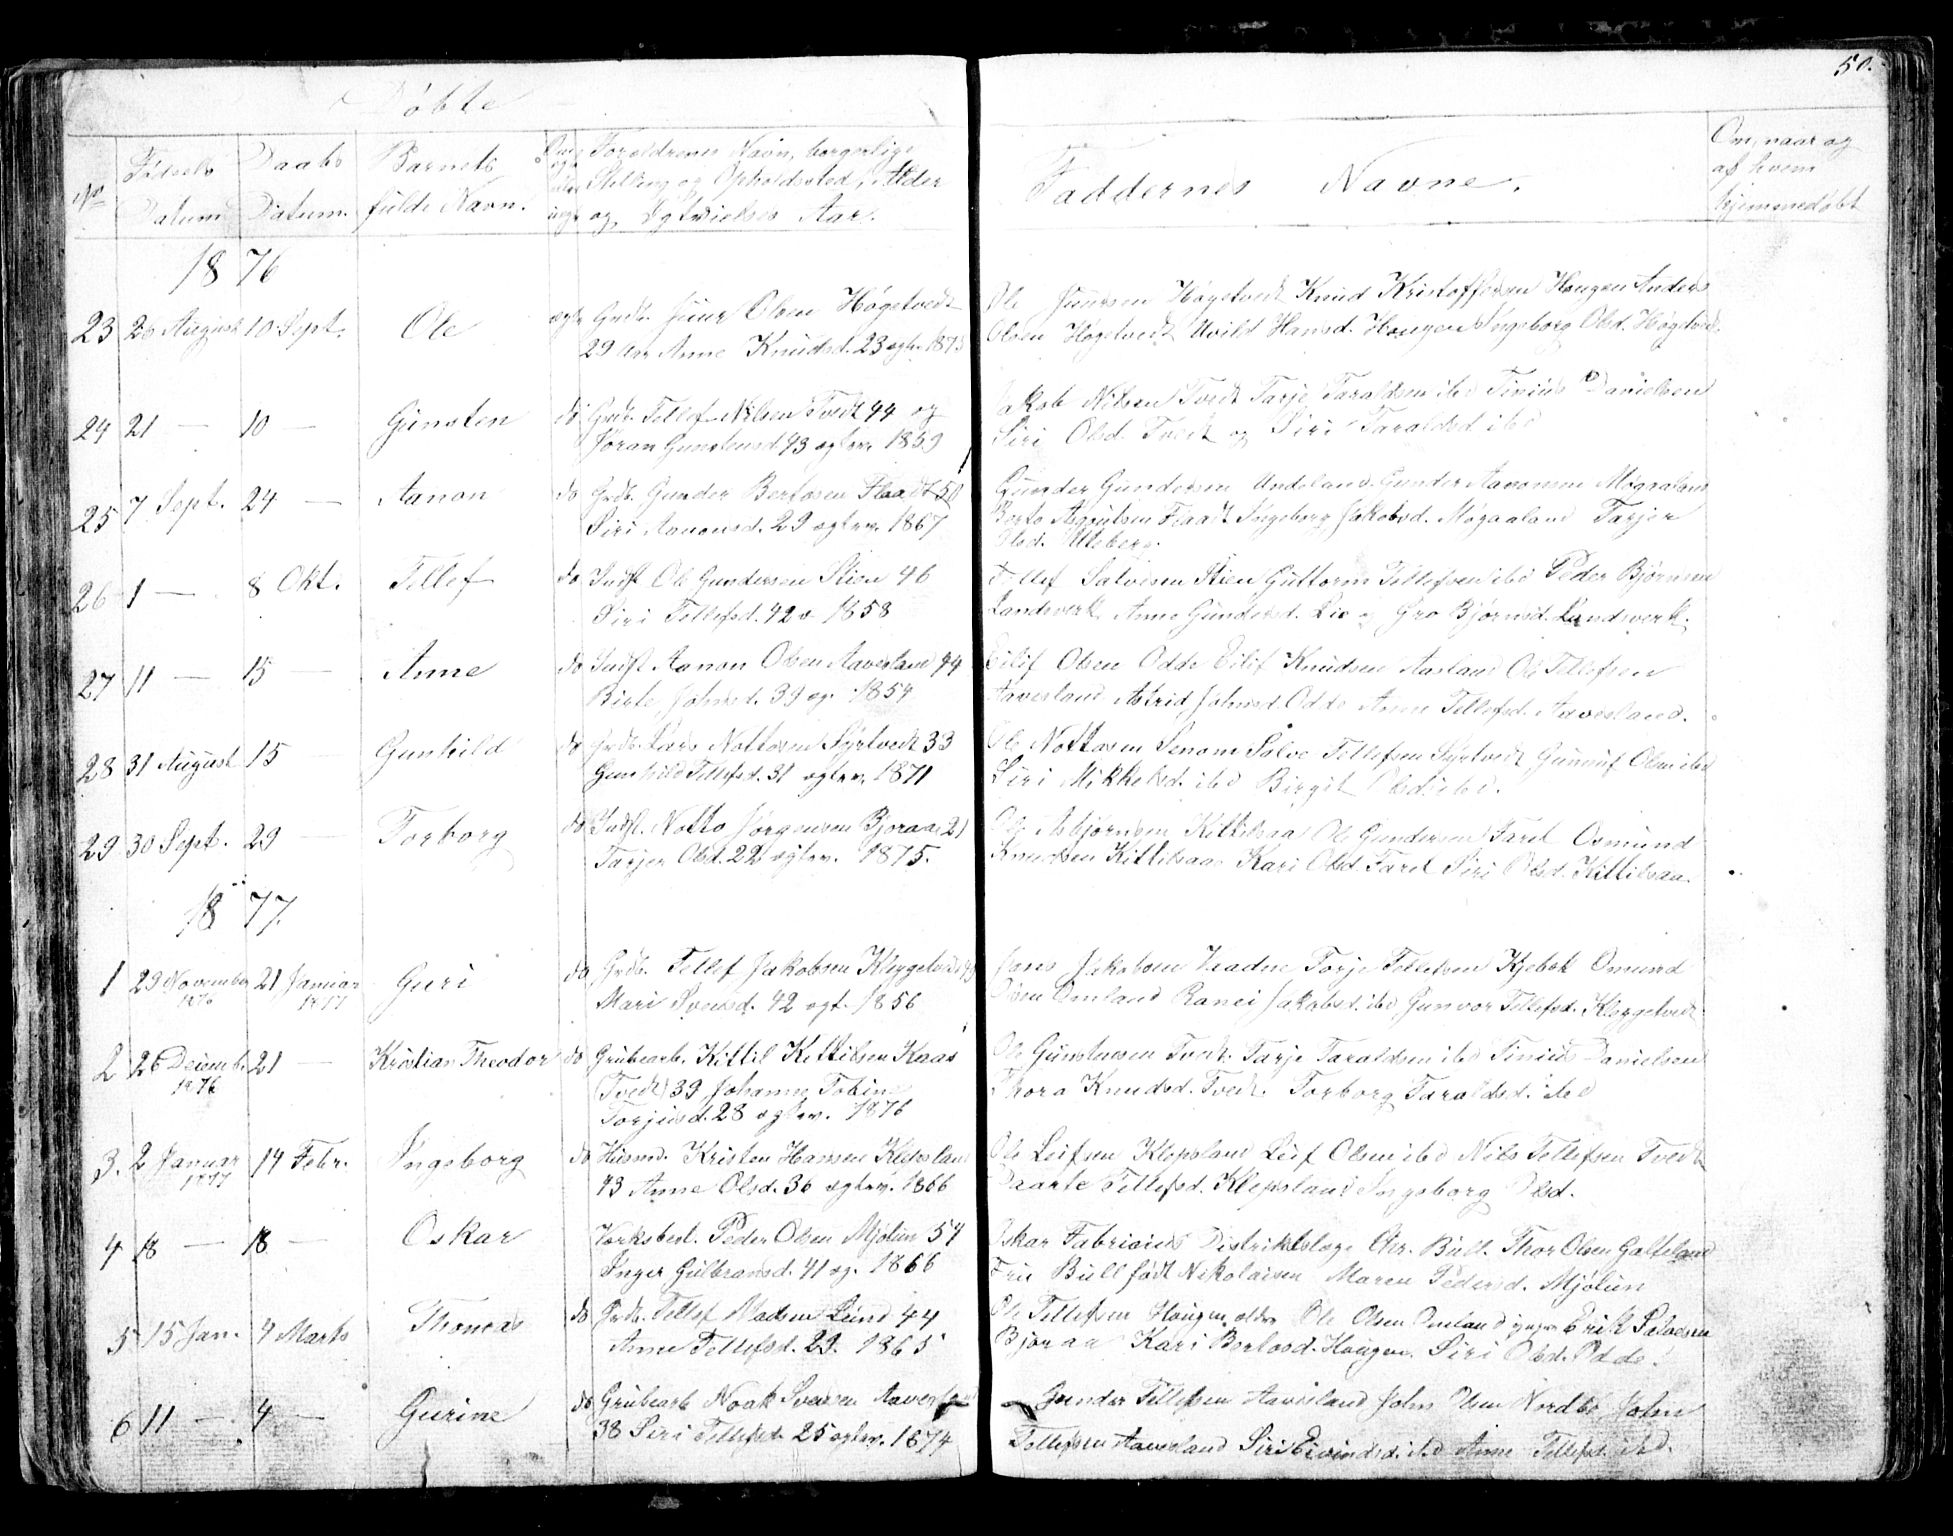 50.
Døbte
No Fødsels Datum Daabs Datum. Barnets fulde Navn. Forældrenes Navn, borgerlige
Stilling og Opholdssted, Alder
og Ægtvielses Aar.
Faddernes Navne.
Om, naar og
af hvem
hjemmedøbt
1876
23 20 August 10 Sept. Ole ægte Grdb. Juur Olsen Høgetvedt
29 Aar Anne Knudsd. 23 ægtv. 1875
Ole Juursen Høgetvedt Knud Kristoffersen Hougen Anders
Olsen Høgetvedt Hansd. Hougen Ingeborg Olsd. Høgetvedt
24 21 — 10 — Gunsten do Grdb. Tellef Nilsen Tvedt 44 og
Jøran Gunstensd. 43 ægtv. 1859
Jakob Nilsen Tvedt Tarje Taraldsen ibd Tinius Danielsen
Siri Olsd. Tvedt og Siri Taraldsd ibd
25 7 Sept. 24 — Aanon do Grdb. Gunder Bertosen Flaadt 50
Siri Aanonsd. 29 ægtev. 1867
Gunder Gundersen Undeland Gunder Aanonsen Mogaaland
Berto Flaadt Ingeborg Jakobsd. Mogaaland Tarjer
Olsd. Ulleberg.
26 1 — 8 Okt. Tellef do Indst Ole Gundersen Stien 46
Siri Tellefsd. 42 æ. 1858
Tellef Salvesen Stien Guttorm Tellefsen ibd Peder Bjørnsen
Landsverk Anne Gundersd. Lie og Gro Bjørnsd. Landsverk.
27 11 — 15 — Anne do Indst Aanon Olsen Aavesland 44
Birte Johnsd. 39 æg. 1854
Eilif Olsen Odde Eilif Knudsen Aasland Ole Tellefsen
Aavesland Astrid Johnsd. Odde Anne Tellefsd. Aavesland.
28 31 August 15 Gunhild do Grdb. Lars Nottosen Syrtvedt 33
Gunhild Tellefsd. 31 ægtev. 1871
Ole Nottosen Senum Salve Tellefsen Syrtvedt Gunnuf Olsen ibd
Siri Mikkelsd. ibd Birgit Olsd ibd.
29 30 Sept. 29 — Torborg do Indst. Notto Jørgensen Bjoraa 21
Tarjer Olsd. 22 ægtev. 1875.
Ole Asbjørnsen Kittilsaa Ole Gundersen Faret Osmund
Knudsen Kittilsaa Kari Olsd. Faret Siri Olsd. Kittilsaa.
1877.
1 29 November 1876 21 Januar 1877 Guri do Grdb. Tellef Jakobsen Kleggetvedt 43
Mari Svensd. 42 ægt. 1856
Jens Jakobsen Vaadne Torje Tellefsen Kjebek Omund
Olsen Omland Ranei Jakobsd. ibd Gunvor Tellefsd. Kleggetvedt.
2 26 Decemb. 1876 21 — Kristian Theodor do Grubearb. Kittil Kittilsen Kaas
(Tvedt) 39 Johanne Tobin
Torjusd. 28 ægtev. 1876
Ole Gunstensen Tvedt Tarje Taraldsen ibd Tinius Danielsen
Thora Knudsd. Tvedt. Torborg Taraldsd. ibd
3. 2 Januar 1877 14 Febr. Ingeborg do Husmd. Kristen Hansen Klepsland
43 Anne Olsd. 36 ægtev. 1866
Ole Leifsen Klepsland Leif Olsen ibd Nils Tellefsen Tvedt
Tellefsd. Klepsland Ingeborg Olsd.
4 18 — 18 — Oskar Verksbest. Peder Olsen Mjølun 54
Inger Gulbransd. 41 æg. 1866
Oskar Fabricius Distriktslæge Chr. Bull. Thor Olsen Galteland
Fru Bull født Nikolaisen Maren Pedersd. Mjølun
5 15 Jan. 4 Marts Thomas do Grdb. Tellef Madsen Lund 44
Anne Tellefsd. 29. 1865
Ole Tellefsen Hougen ældre Ole Olsen Omland yngre Erik Salvesen
Bjoraa Kari Bertosd. Hougen. Siri Olsd. Odde.
6 11 — 4 — Gurine do Grubearb Noak Svensen Aavesland
38 Siri Tellefsd. 25 ægtev. 1874
Gunder Tellefsen Aavesland John Olsen Nordbø John
Tellefsen Aavesland Siri Eivindsd. ibd Anne Tellefsd. ibd.